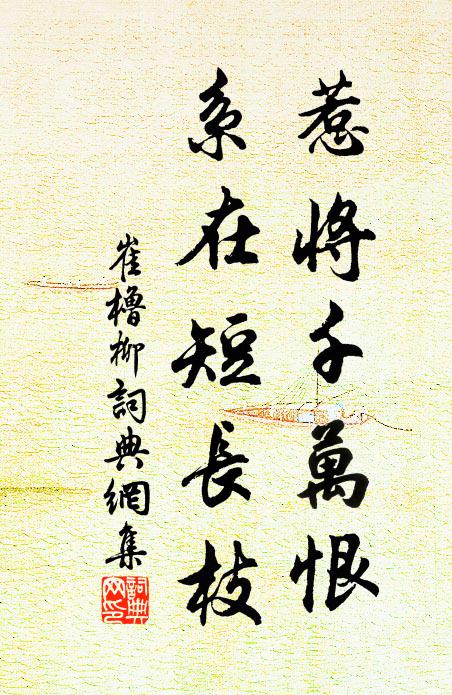 惹將千萬恨
系在短長枝
崔櫓柳詞典網集
詞典
网印